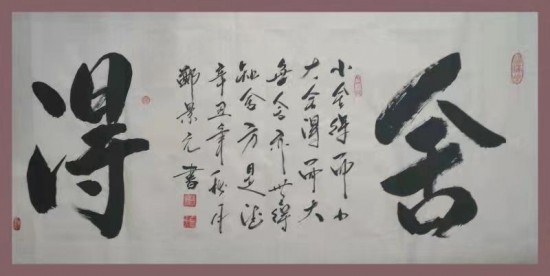 舍
小舍得而小
大舍得而大
無舍亦無得
舍方是德
辛丑年秋月
鄭景元書
得